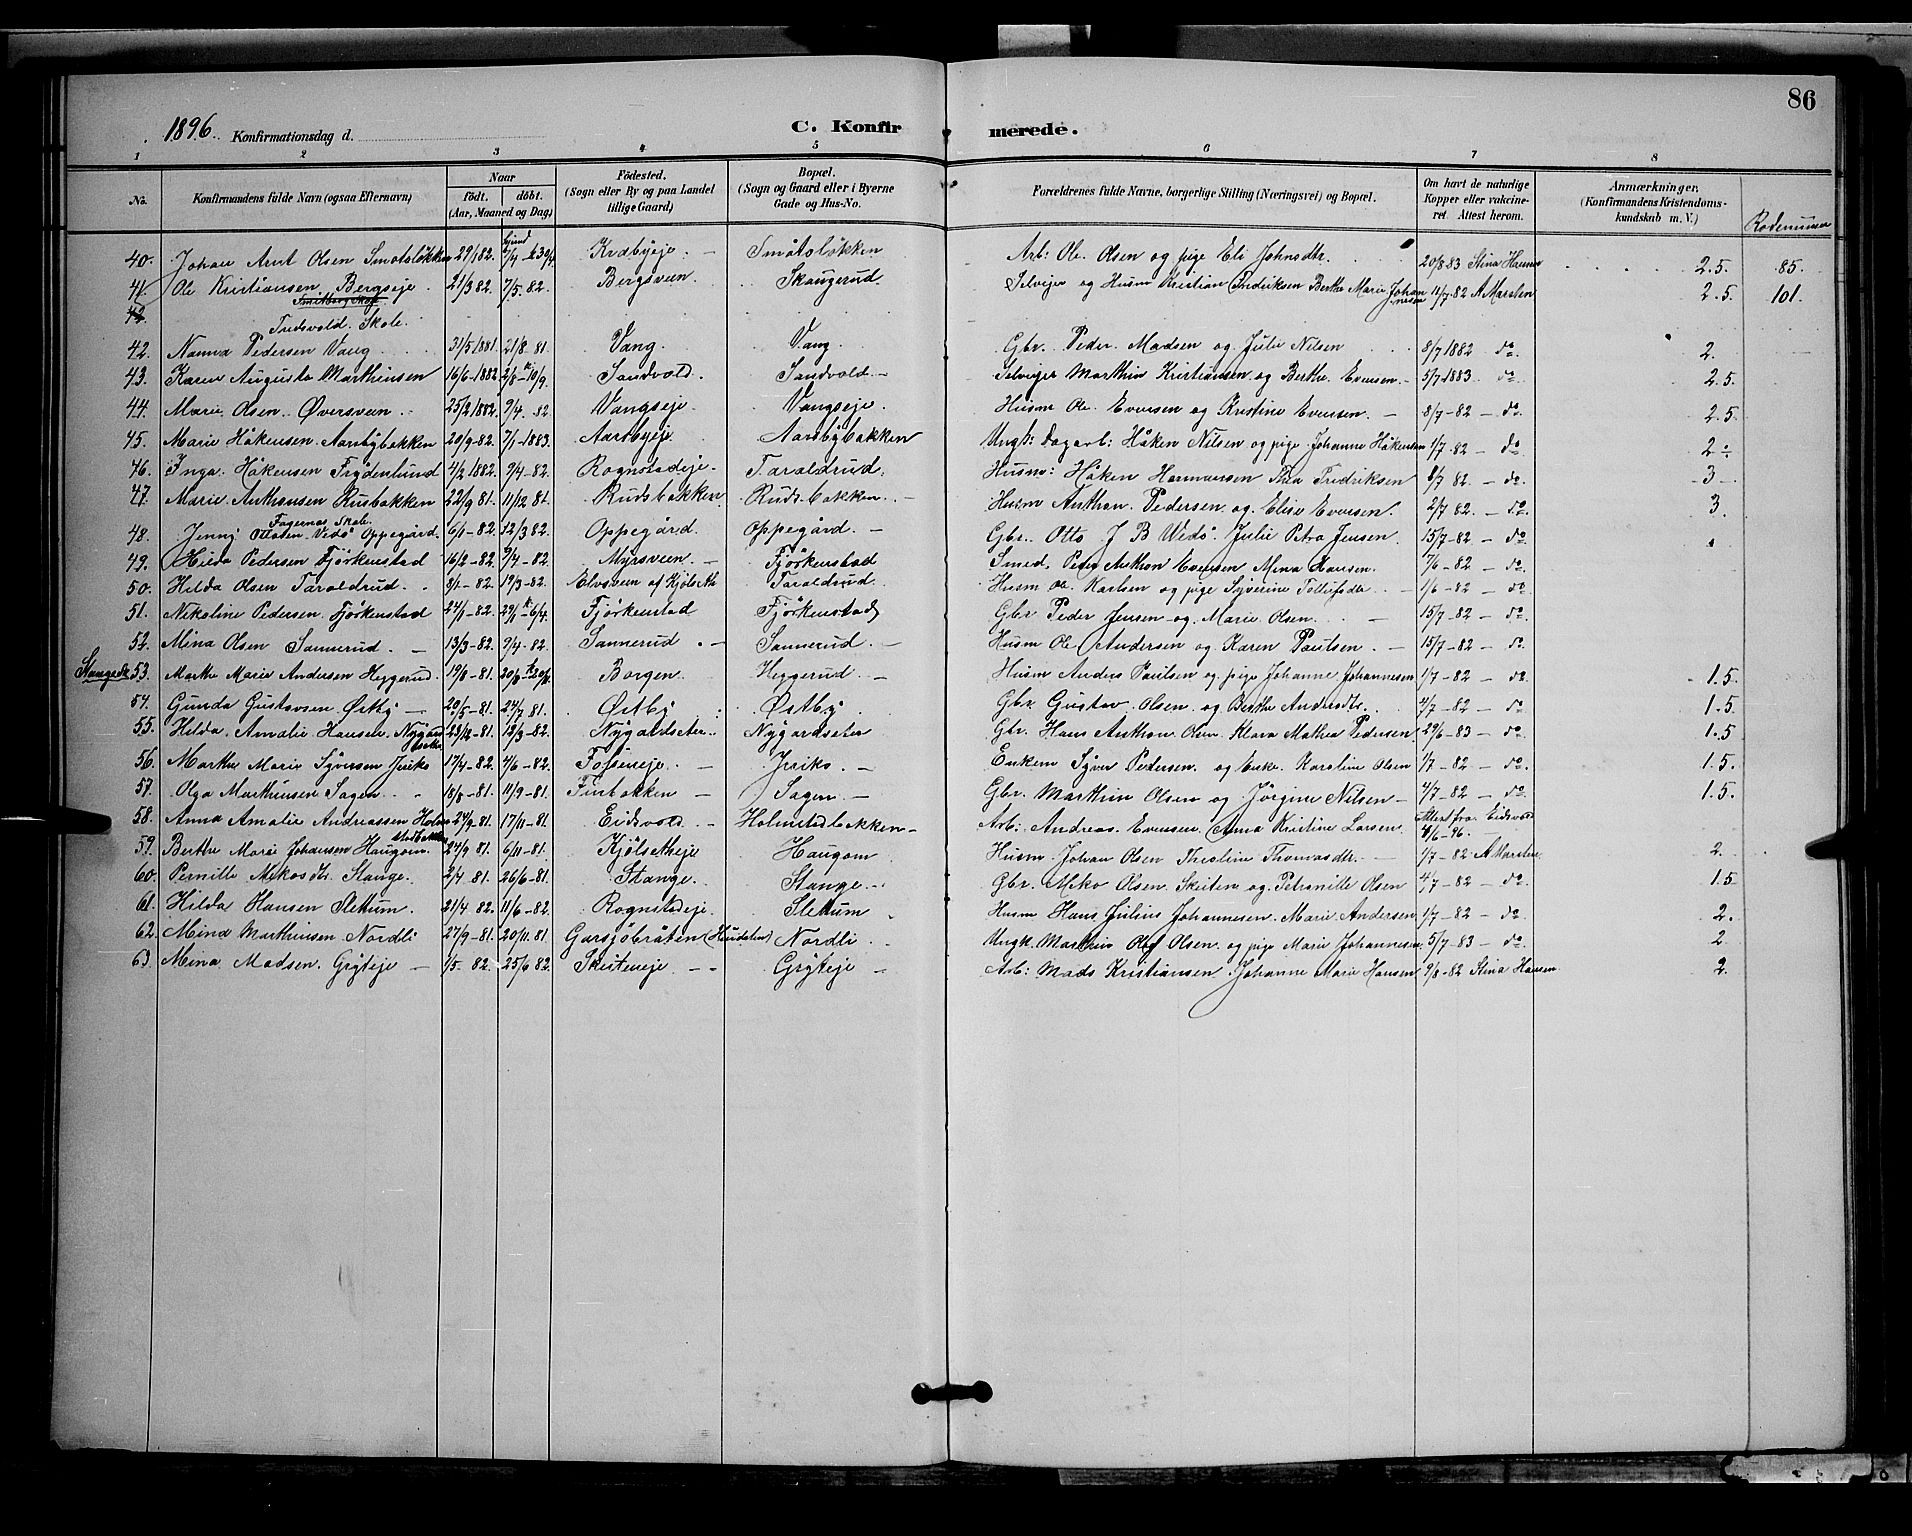 86
1896. Konfirmationsdag d. C. Konfirmerede.
1 2 3 4 5 6 7 8
No. Konfirmandens fulde Navn (ogsaa Efternavn) Naar født. døbt. (Aar, Maaned og Dag) Fødested. (Sogn eller By og paa Landet tillige Gaard) Bopæl. (Sogn og Gaard eller i Byerne Gade og Hus-No. Forældrenes fulde Navne, borgerlige Stilling (Næringsvei) og Bopæl. Om havt de naturlige Kopper eller vakcineret. Attest herom. Anmærkninger, (Konfirmandens Kristendomskundskab m. V.) Rodenummer
40. Johan Arnt Olsen Smøtsløkken 29/1 82. Smøtsløkken Arb: Ole Olsen og pige Eli Johnsdtr. 20/8 83 Stina Hansen 2.5. 85.
41. Ole Kristiansen Bergseje 21/3 82. 7/5. 82. Bergsveen Skaugerud. Selveier og Husm Kristian Berthe Marie Johannesen 11/7-82 A Marsten 2.5. 101.
42. Skole.
42. Nanna Pedersen Vang 31/5 1881. 21/8-81. Vang. Vang. Gbr. Peder Madsen og Julie Nilsen 8/7 1882 do 2.
43. Karen Augusta Marthinsen 16/6-1882 2/8-k 10/9. Sandvold. Sandvold.- Selveier Marthin Kristiansen og Berthe Evensen.- 5/7 1883 do 2.5.
44. Marie Olsen Øversveen 25/2 1882. 9/4. 82. Vangseje. Vangseje. Husm Ole Evensen og Kristine Evensen. - 8/7-82 - do 2.5.
45. Marie Håkensen Aarsbybakken 20/9-82. 7/1-1883. Aarsbyeje. Aarsbybakken Ungk: dagarb: Håken Nilsen og pige Johanne Håkensen 1/7-82 - do 2÷
46. Inga Håkensen Frydenlund 4/2 1882. 9/4-82. Rognstadeje. Taraldrud. Husm: Håken Hermansen Thea Fredriksen 8/7 82. - do 3
47. Marie Anthonsen Rusbakken 22/9 81. 11/12 81. Rudsbakken Rudsbakken. - Husm Anthon Pedersen og Elise Evensen. 2/7 82. - do 3.
Fagernas Skole.
48. Jenny Ottosen Vedø Oppegård. 6/1-82. 12/3 82. Oppegård Oppegård. - Gbr. Otto J B Wedø Julie Petra Jensen 15/7-82 - do
49. Hilda Pedersen Fjørkenstad 16/2-82. 9/4-82. Myrsveen - Fjørkenstad Smed, Peder Anthon Evensen Mina Hansen. 7/6-82 - do
50. Hilda Olsen Taraldrud. 8/1-82. 19/3-82. Elvsveen af Taraldsrud. Husm Ole Karlsen og pige Syverine Tollefsdtr. - 1/6-82 - do
51. Nikoline Pedersen Fjørkenstad 24/1-82. 29/1-k 6/4. Fjørkenstad Fjørkenstad Gbr Peder Jensen og Marie Olsen. 15/7-82 - do
52. Mina Olsen Sannerud. - 13/3-82. 9/4-82. Sannerud - Sannerud. - Husm Ole Andersen og Karen Paulsen. - 15/7-82. - do
53. Marthe Marie Andersen Heggerud. 19/8-81. Borgen Heggerud. - Husm Anders Paulsen og pige Johanne Johannesen 1/7-82 - do 1.5.
54. Gunda Gustavsen Østby - 20/5-81. 24/7 81. Østby Østby Gbr Gustav Olsen og Berthe Andersdtr. 4/7-82 - do 1.5.
55. Hilda Amalie Hansen Nygårdsetra 23/12-81. 12/3-82. Nygaardseter. Nygardseter Gbr. Hans Anthon Olsen Klara Mathea Pedersen 29/6-83 - do 1.5
56. Marthe Marie Syversen Jeriko 17/4-82. 4/6-82. Fossneje. - Jeriko. - Enkem Syver Pedersen og Enke Karoline Olsen 1/7-82 - do 1.5.
57. Olga Marthinsen Sagen. 18/8-81. 11/9-81. Finbakken - Sagen - Gbr. Marthin Olsen og Jørgine Nilsen - 4/7-82 - do 1.5.
58. Anna Amalie Andreassen Holmstadbakken 24/9 81. 17/11-81. Eidsvold - Holmstadbakken - Arb: Andreas Evensen Anna Kristine Larsen Attest fra Eidsvold
59. Berthe Marie Johansen Haugom. 24/9 81. 6/11-81. Kjølsetheje Haugom Husm Johan Olsen Theoline Thomasdtr. - 1/7-82 A Marsten 2.
60. Pernille Mikosdtr. Stange. 2/4 81. 26/6-81. Stange. Stange.- Gbr. Miko Olsen Skeiten og Petronille Olsen 4/7-82 - do 1.5
61. Hilda Hansen Slettum. 21/4 82. 11/6-82. Rognstadeje. Slettum Husm Hans Julius Johannesen. Marie Andersen 1/7-82 - do 2.
62. Mina Marthinsen Nordli 27/9-81. 20/11. 81. Garsjøbråten Nordli Ungk. Marthin Olsen og pige Marie Johannesen 5/7-83 - do 2
63. Mina Madsen. Gryteje - 1/5. 82. 25/6 82. Skeiteneje - - Gryteje - Arb: Mads Kristiansen Johanne Marie Hansen 9/8-82 Stina Hansen 2.